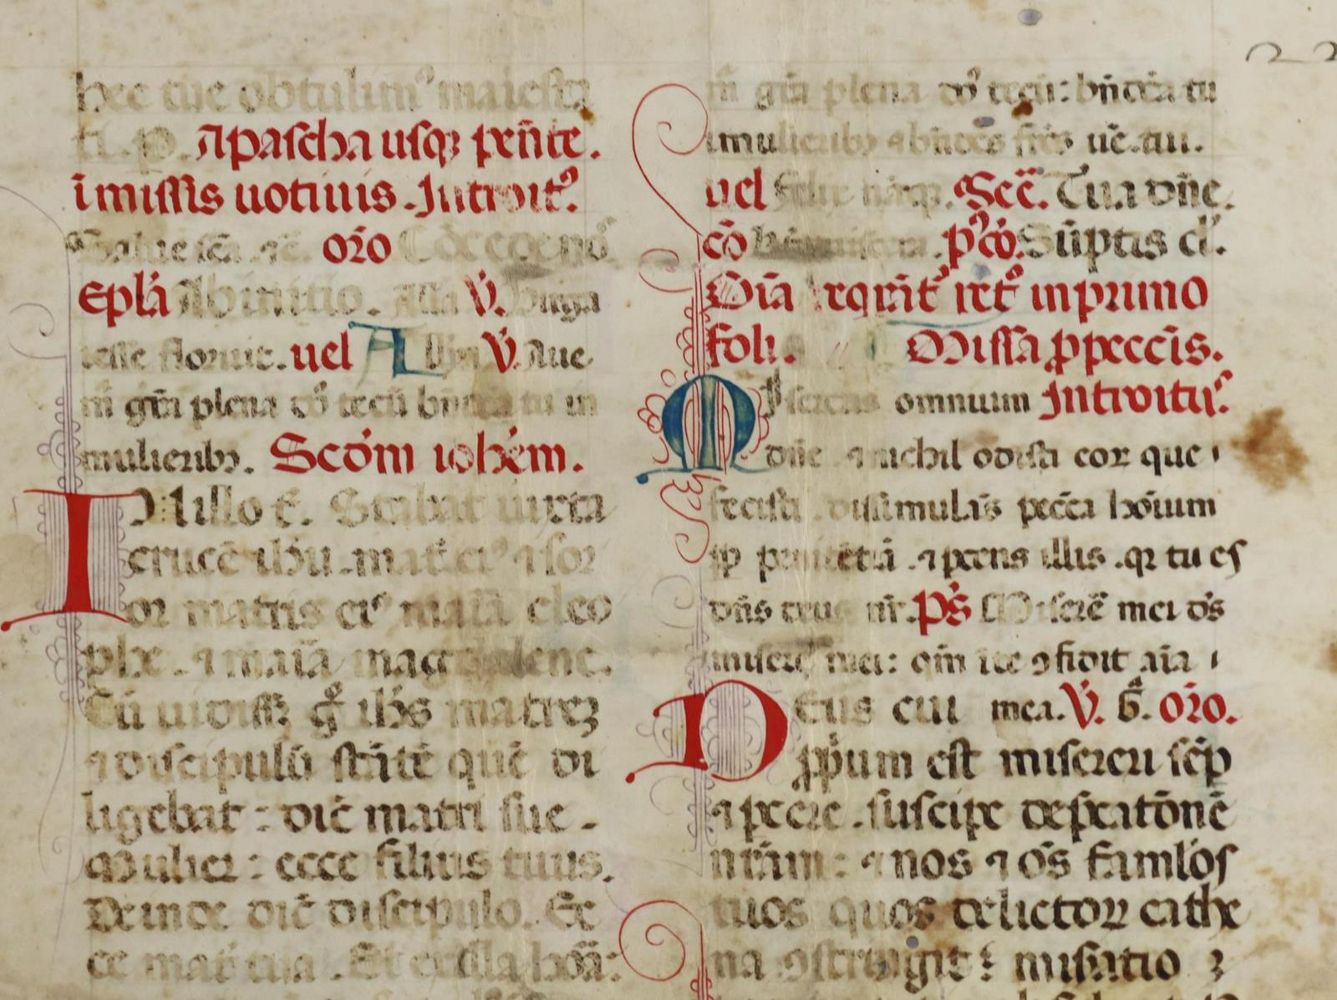 hec tue obtulim᷒ maiesta
ti. p. A pascha usqȝ pēnte.
ī missis uotiuis. Introit᷒.
Salue scā. or̄o Cōcede nō
epl̄a Ab initio. All̄a V̄. Uirga
iesse floruit. uel All̄a V̄. Aue
m̄ gr̄a plena dō tecū bn̄dcā tu in
mulieribȝ. Scd̄m ioh̄em.
IN illo t̄. Stabat iuxta
crucē ih̄u. mat̄ ei᷒ ⁊ sor
or matris ei᷒ maīā cleo
phe. ⁊ maīā magdalene.
Cū uidissȝ g̊ ih̄s matreȝ
⁊ discipulū stātē quē di
ligebat: dic̄ matri sue.
Mulier: ecce filius tuus.
Deinde dic̄ discipulo. Ec
ce mat̄ tua. Et ex illa hōā:
m̄ gr̄a plena dō tecū: bn̄dcā tu
ī mulieribȝ ⁊ bn̄dcs frc̄s uē. tui.
uel Felix nāqȝ. Sec̄. Tua dn̄e.
cō p᷒cō. Sūptis d̄.
Oīa reqr̄it᷒ ret᷒ in primo
foli. Missa ꝓ peccīs.
Misereris omnium Introitus.
dn̄e ⁊ nichil odisti eor que
fecisti dissimulās peccā hoīum
ꝓp penitētiā. ⁊ parcens illis. qr tu es
dn̄s deus nr̄. Ps̄ Miserē mei ds̄
miserē mei: qm̄ ī te ꝯfidit aīa
DEus cui mea. V̄. G̅. or̄o.
ꝓpium est misereri sēp
⁊ pcere. suscipe depcatōnē
nrām: ⁊ nos ⁊ oēs famlōs
tuos quos delictoꝝ cathe
na ꝯstringit: misatio